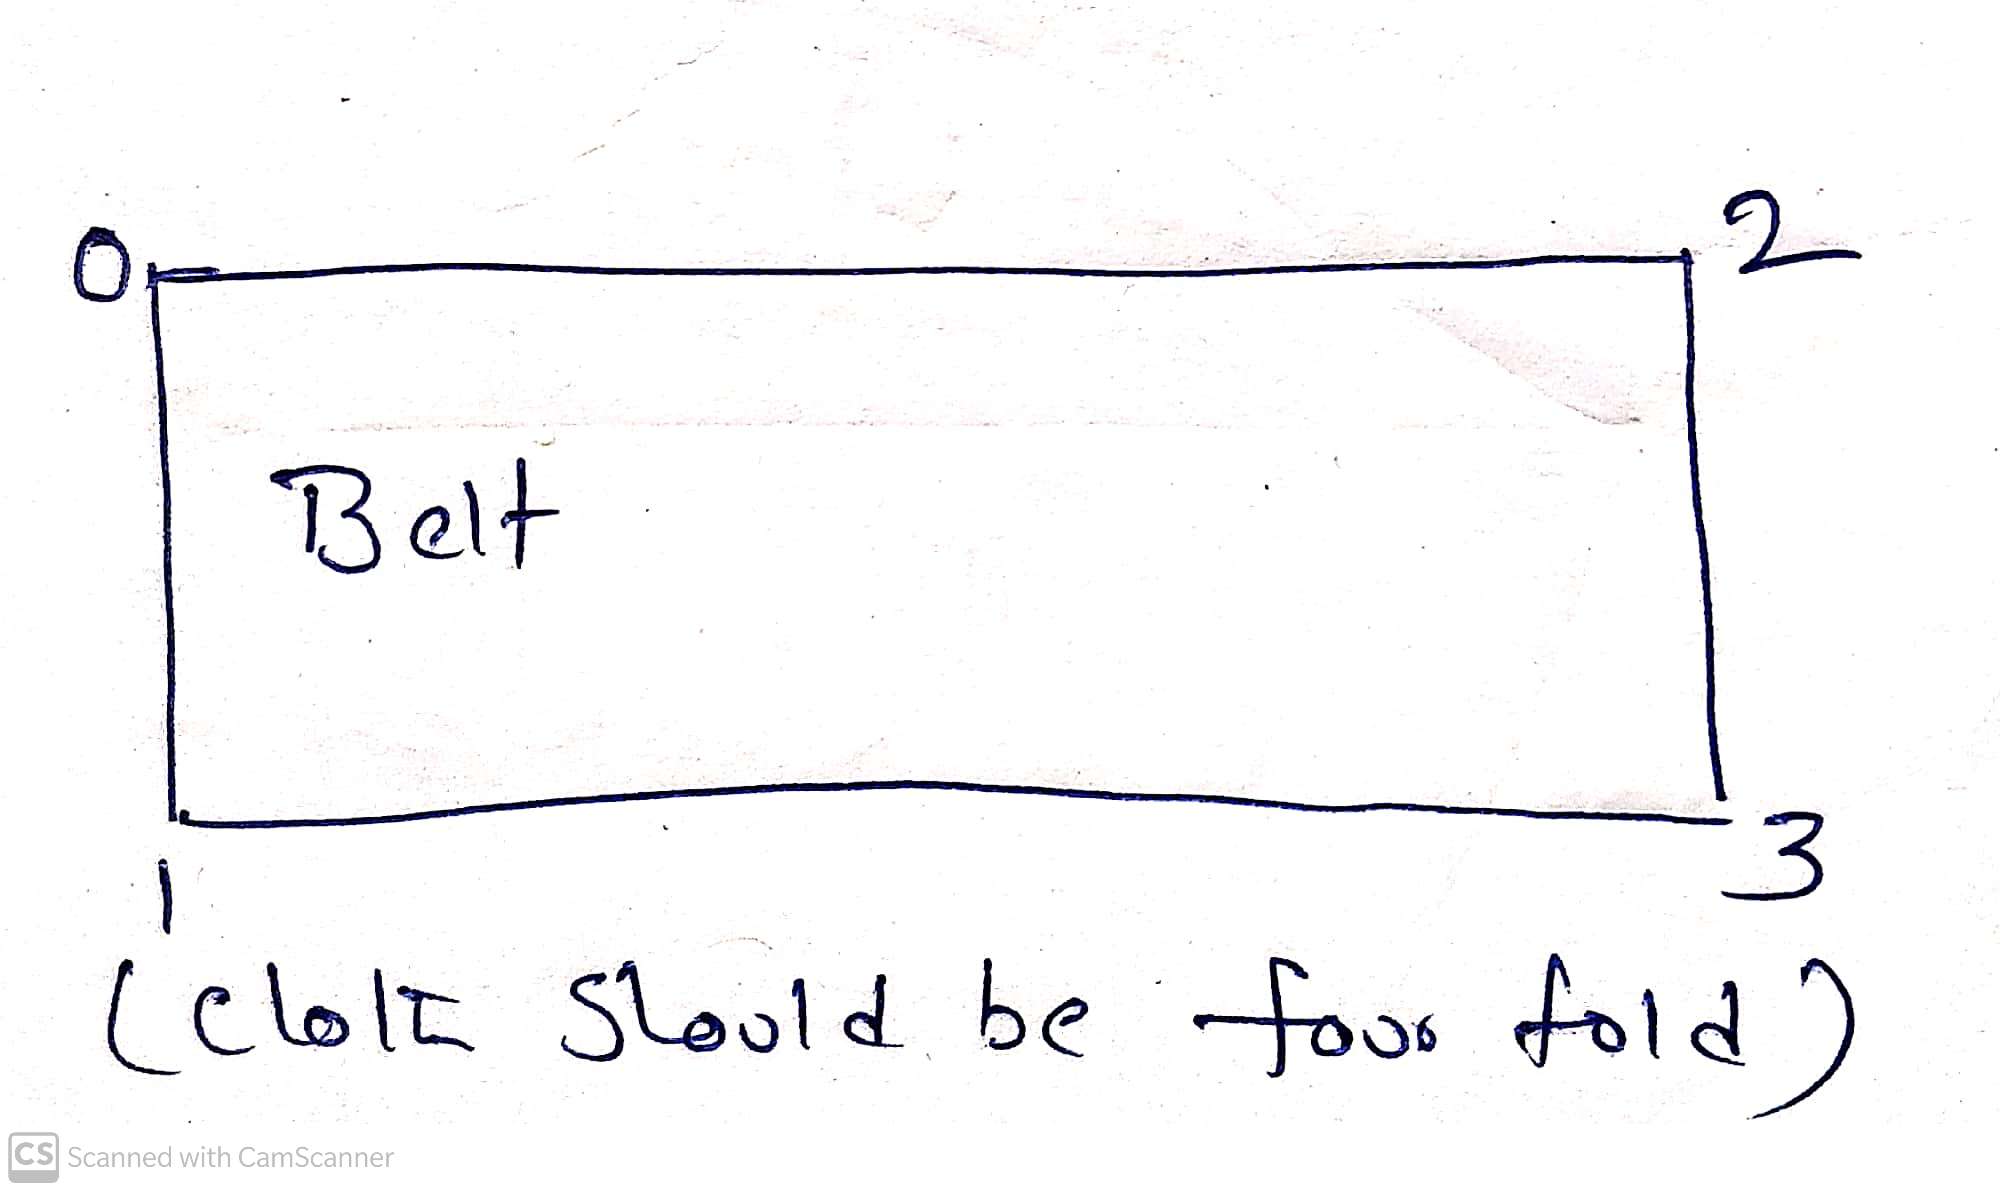 0 2
Belt
1 3
(Cloth should be four fold)
CS Scanned with CamScanner